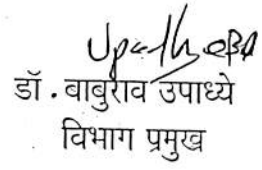 डॉ. बाबुराव उपाध्ये
विभाग प्रमुख